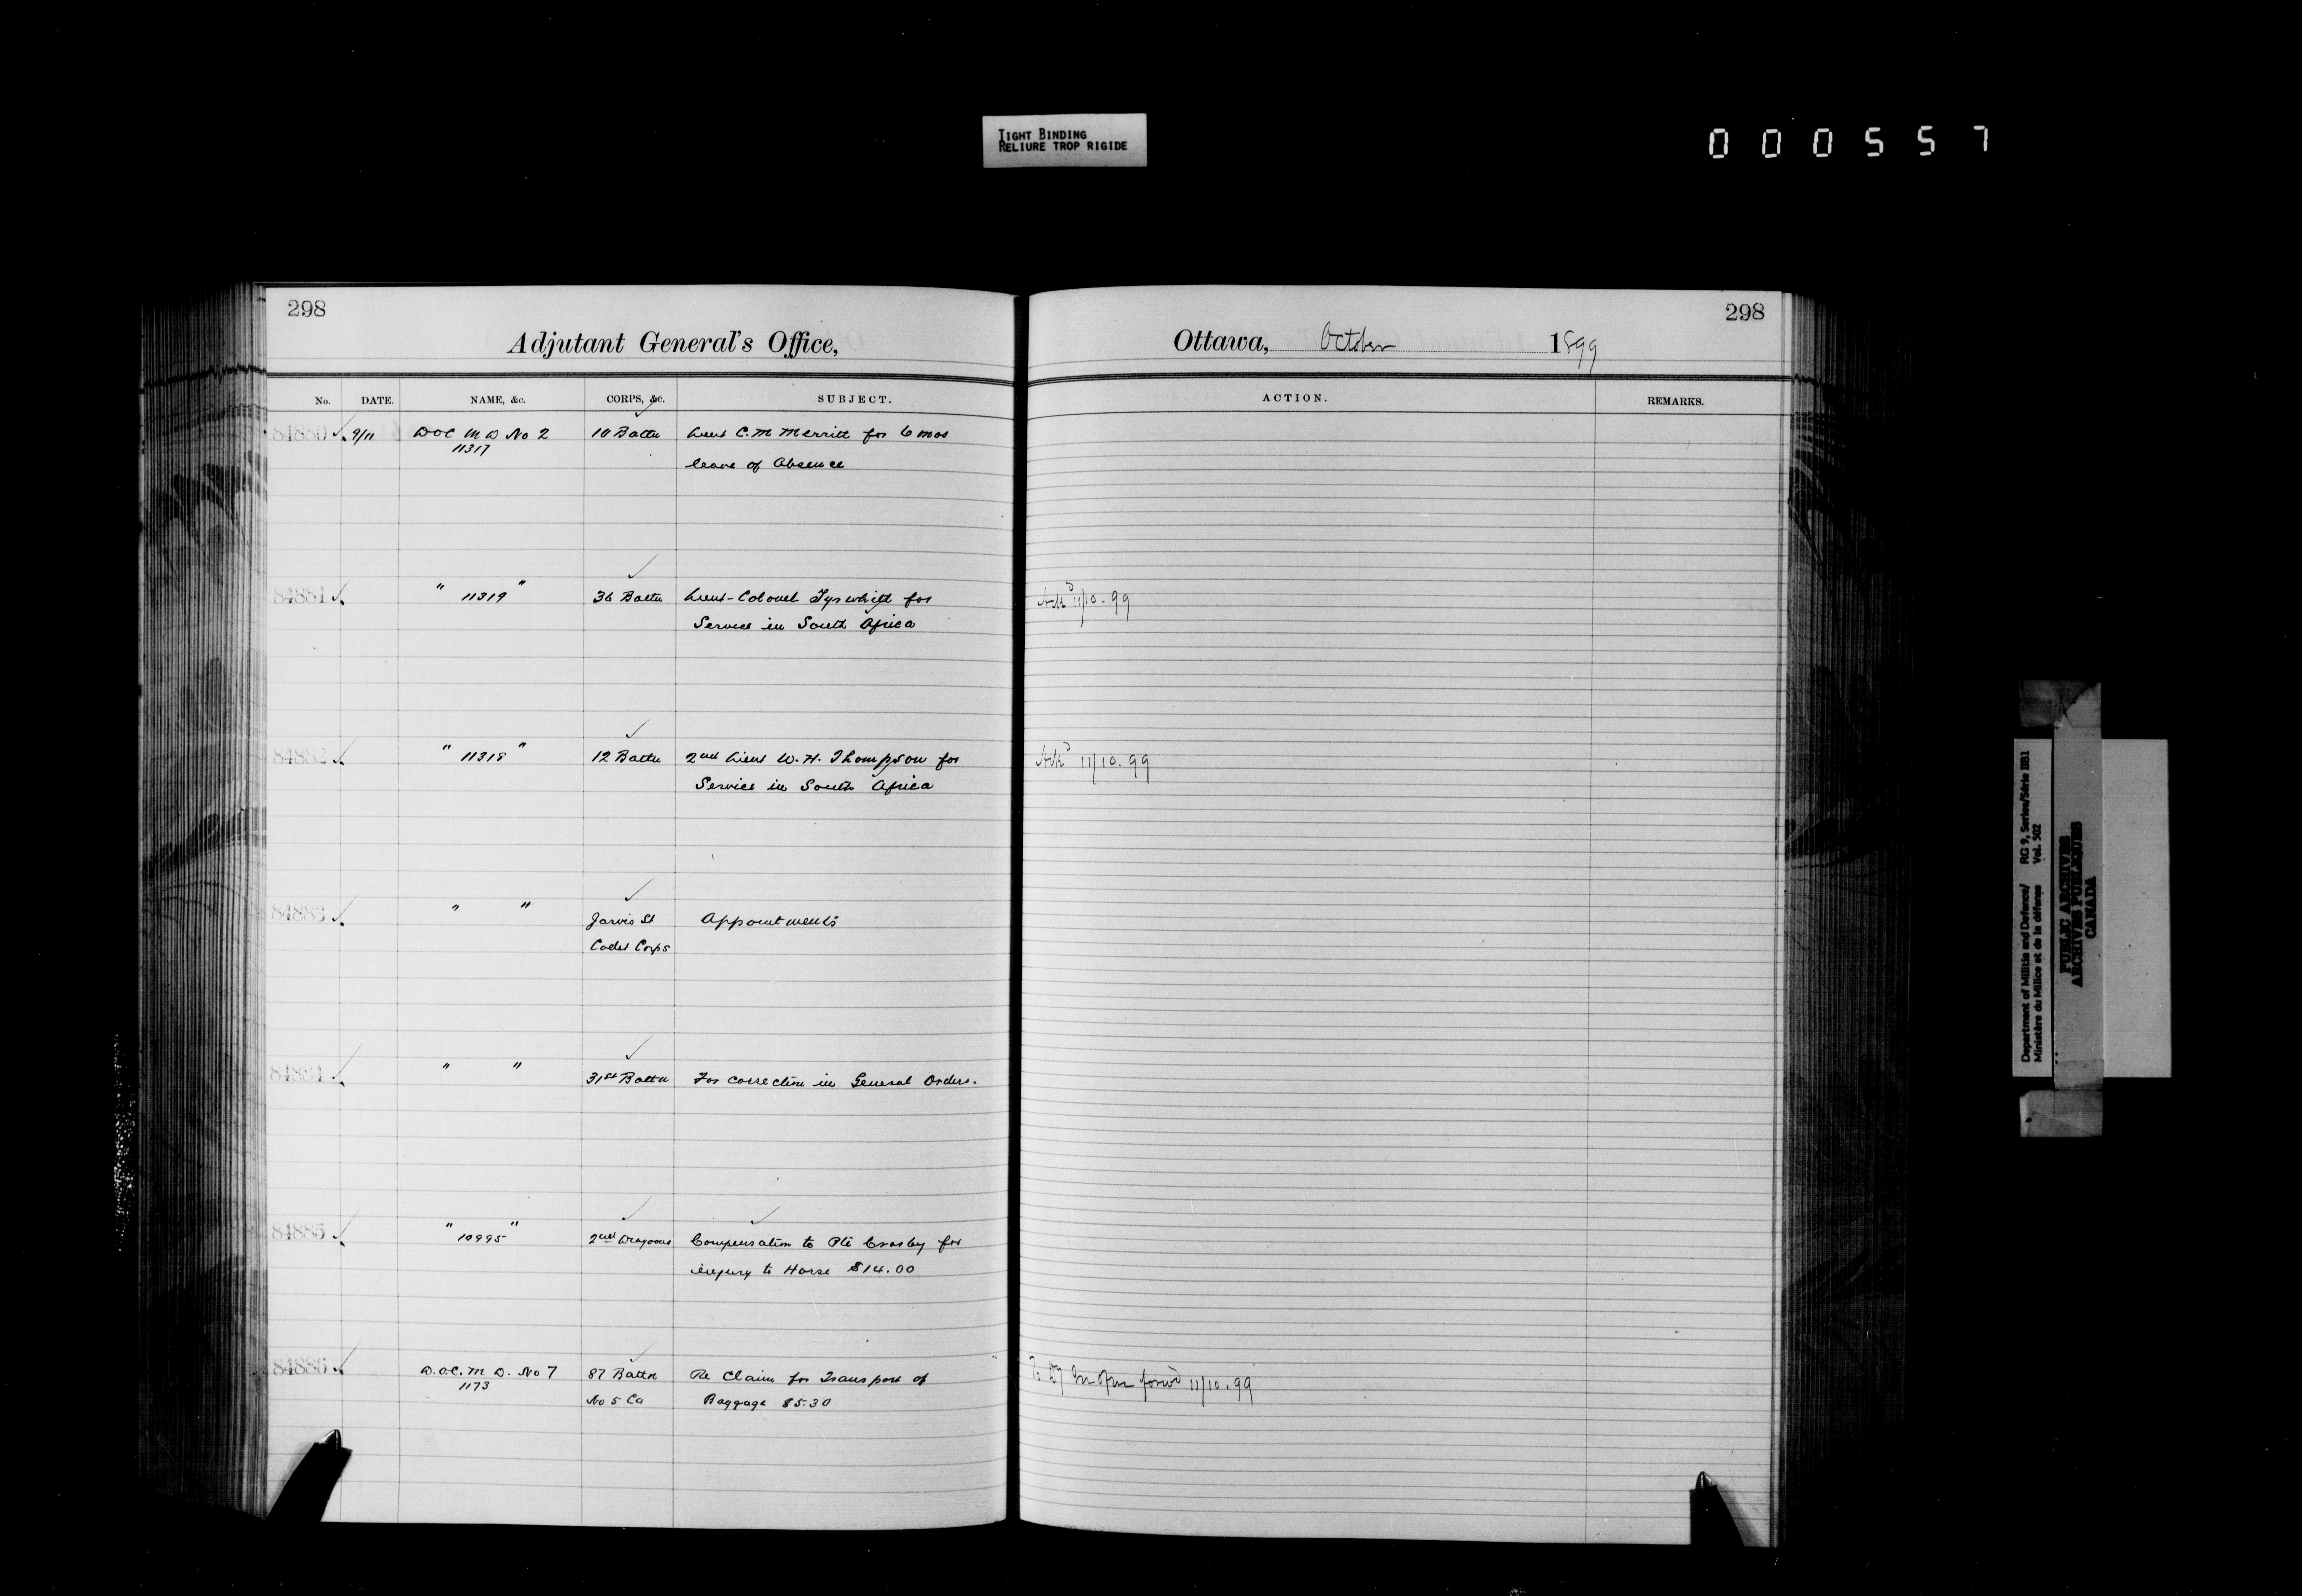 TIGHT BINDING
RELIURE TROP RIGIDE
000557
298
Adjutant General's Office,
No. DATE. NAME, &c. CORPS, &c. SUBJECT.
84880 9/11 DOC M D No 2 10 Battn Lieut C. M Merritt for 6 mos
11317 leave of Absence
84881 " 11319 " 36 Battn Lieut-Colonel Tyrwhitt for
Service in South Africa
84882 " 11318 " 12 Battn 2nd Lieut W. H. Thompson for
Service in South Africa
84883 " " Jarvis St Appointments
Cadet Corps
84884 " " 31st Battn For correction in General Orders.
84885 " 10995 " 2nd Dragoons Compensation to Pte Crosby for
injury to Horse $14.00
84886 D.O.C. M D. No 7 87 Battn Re Claim for Transport of
1173 No 5 Co Baggage $5.30
298
Ottawa, October 1899
ACTION. REMARKS.
Ackd 11/10.99
Ackd 11/10.99
forwd 11/10.99
Department of Militia and Defence/ RG 9, Series/Série IIB1
Ministère du Milice et de la défense Vol. 502
PUBLIC ARCHIVES
ARCHIVES PUBLIQUES
CANADA